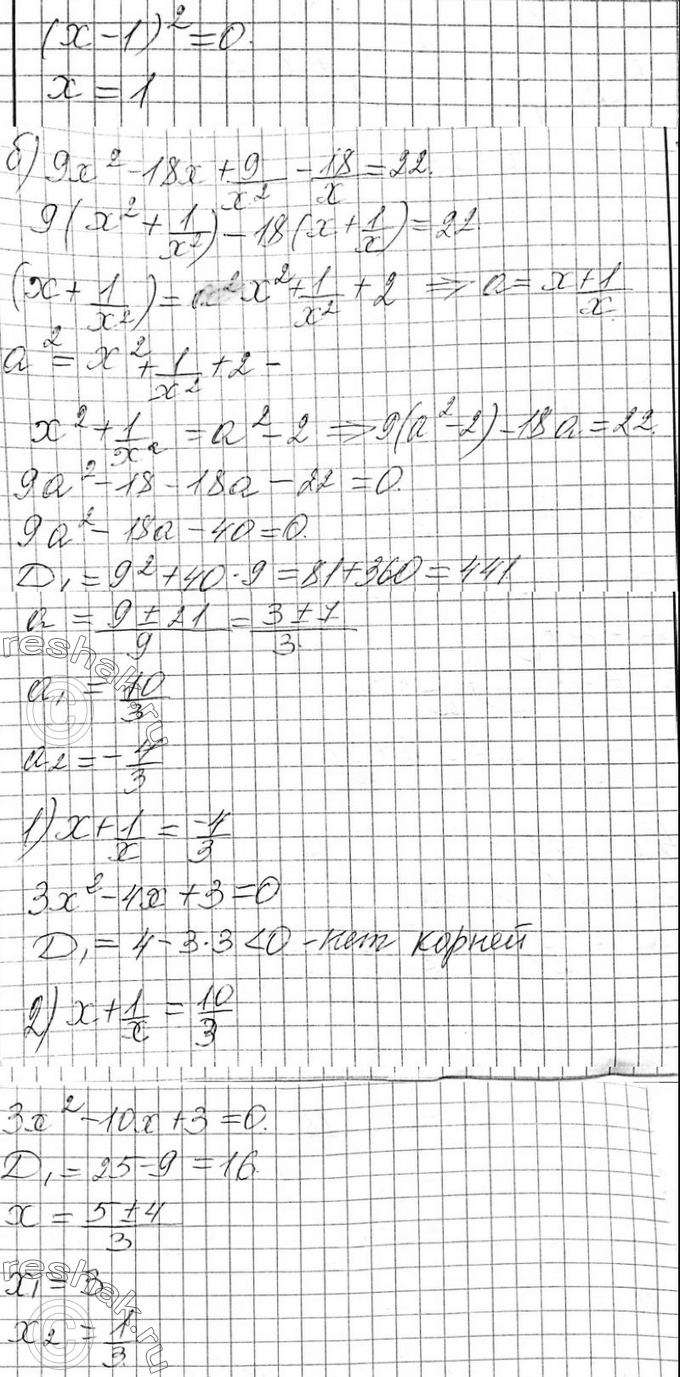 (x-1)²=0.
x=1
б) 9x²-18x+9/x²-18/x=22.
9(x²+1/x²)-18(x+1/x)=22.
(x+1/x²)=a²x²+1/x²+2 => a=x+1/x.
a²=x²+1/x²+2-
x²+1/x²=a²-2 => 9(a²-2)-18a=22.
9a²-18-18a-22=0.
9a²-18a-40=0.
D₁=9²+40·9=81+360=441
a=(9±21)/9=(3±7)/3.
a₁=10/3
a₂=-4/3
1) x+1/x=-4/3
3x²-4x+3=0
D₁=4-3·3<0 -нет корней
2) x+1/x=10/3
3x²-10x+3=0.
D₁=25-9=16.
x=(5±4)/3
x₁=3
x₂=1/3
reshak.ru
reshak.ru